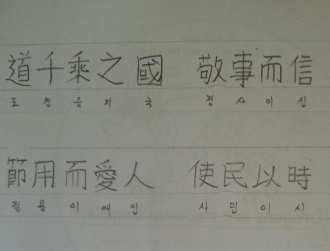 道千乘之國 敬事而信
도 천 승 지 국 경 사 이 신
節用而愛人 使民以時
절 용 이 애 인 사 민 이 시